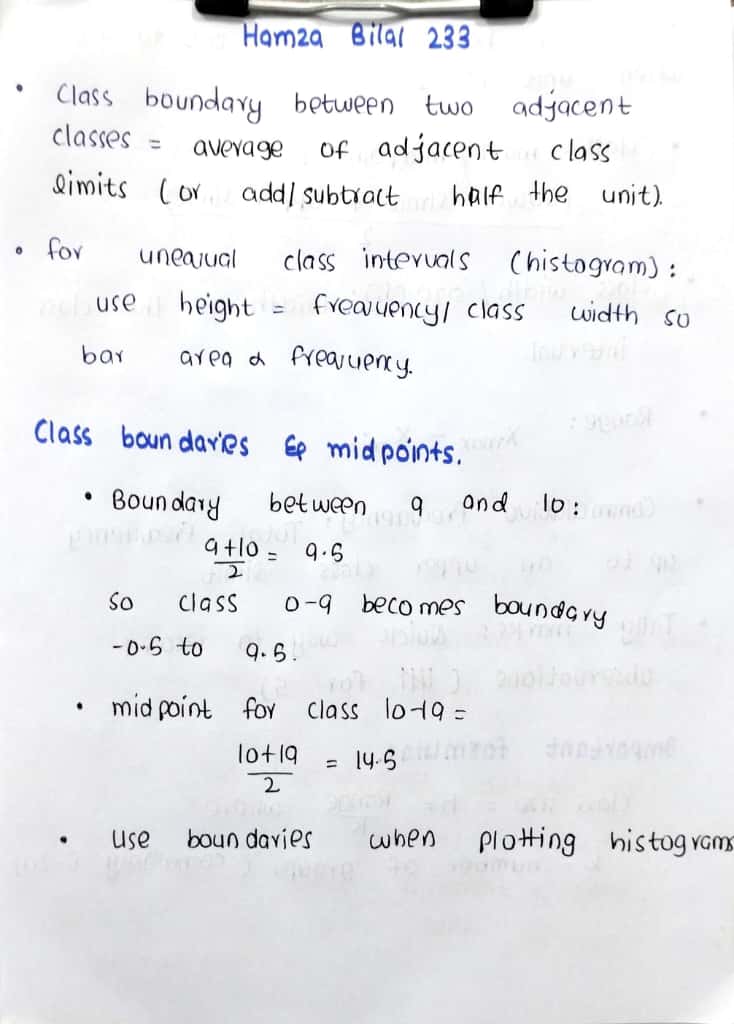 Hamza Bilal 233
• Class boundary between two adjacent
classes = average of adjacent class
limits (or add/subtract half the unit).
• for unequal class intervals (histogram):
use height = frequency/ class width so
bar area α frequency.
Class boundaries & midpoints.
• Boundary between 9 and 10:
9+10/2 = 9.5
so class 0-9 becomes boundary
-0.5 to 9.5.
• midpoint for class 10-19 =
10+19/2 = 14.5
• use boundaries when plotting histograms